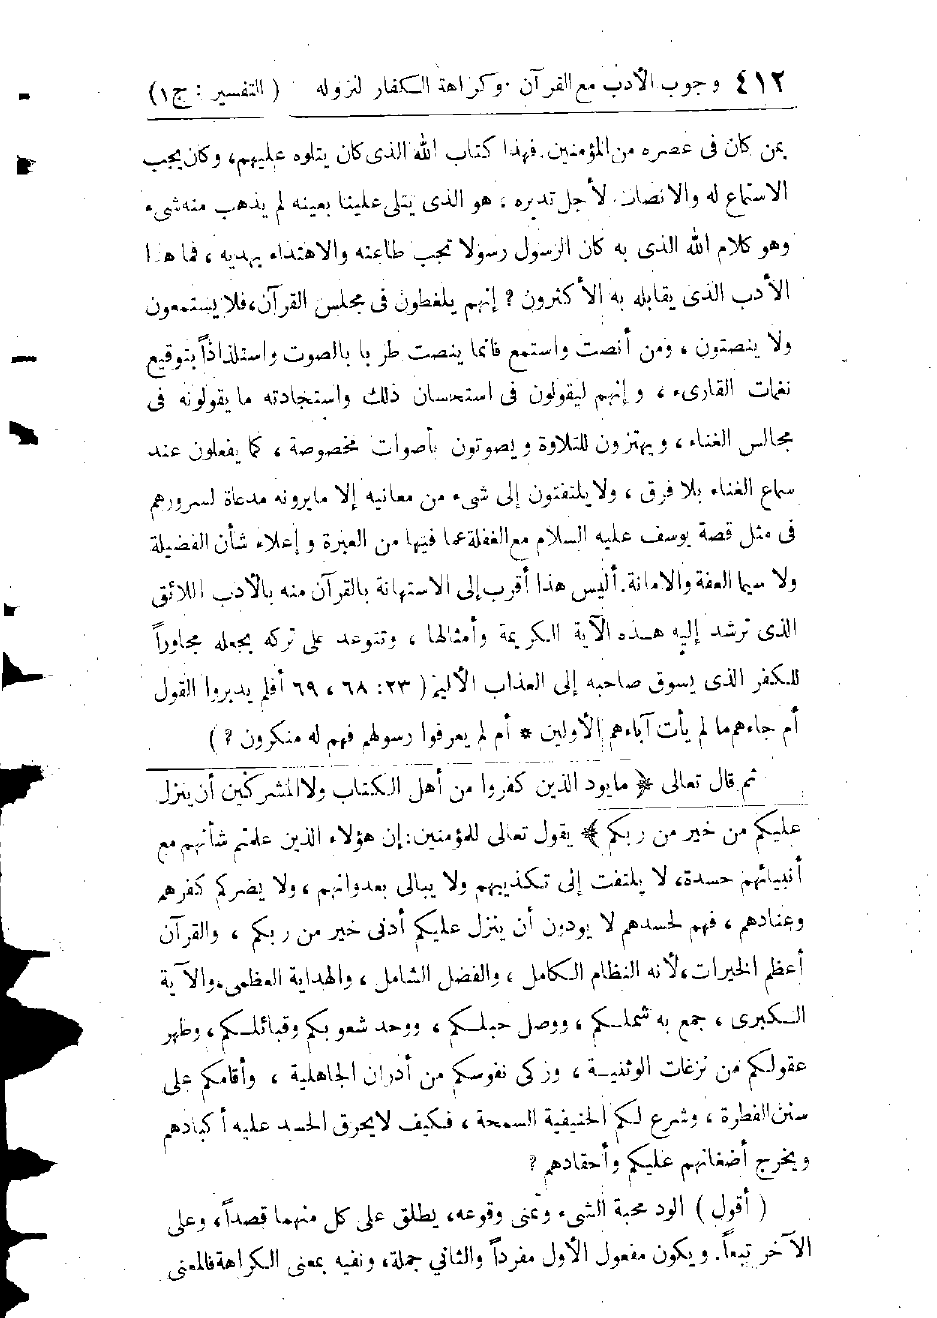 ٤١٢ وجوب الأدب مع القرآن . وكراهة الكفار لنزوله ( التفسير : ج ١ )
بمن كان فى عصره من المؤمنين . فهذا كتاب الله الذى كان يتلوه عليهم، وكان يجب
الاستماع له والانصات لأجل تدبره ، هو الذى يتلى علينا بعينه لم يذهب منه شىء
وهو كلام الله الذى به كان الرسول رسولا تجب طاعته والاهتداء بهديه ، فما هذا
الأدب الذى يقابله به الأكثرون ؟ إنهم يلغطون فى مجلس القرآن، فلا يستمعون
ولا ينصتون ، ومن أنصت واستمع فانما ينصت طربا بالصوت واستلذاذاً بتوقيع
نغمات القارىء ، وإنهم ليقولون فى استحسان ذلك واستجادته ما يقولونه فى
مجالس الغناء ، ويهتزون للتلاوة ويصوتون بأصوات مخصوصة ، كما يفعلون عند
سماع الغناء بلا فرق ، ولا يلتفتون إلى شىء من معانيه إلا ما يرونه مدعاة لسرورهم
فى مثل قصة يوسف عليه السلام مع الغفلة عما فيها من العبرة وإعلاء شأن الفضيلة
ولا سيما العفة والامانة. أليس هذا أقرب إلى الاستهانة بالقرآن منه بالأدب اللائق
الذى ترشد إليه هذه الآية الكريمة وأمثالها ، وتتوعد على تركه بجعله مجاوراً
للكفر الذى يسوق صاحبه إلى العذاب الأليم ( ٢٣: ٦٨ ، ٦٩ أفلم يدبروا القول
أم جاءهم ما لم يأت آباءهم الأولين * أم لم يعرفوا رسولهم فهم له منكرون ؟ )
ثم قال تعالى ﴿ ما يود الذين كفروا من أهل الكتاب ولا المشركين أن ينزل
عليكم من خير من ربكم ﴾ يقول تعالى للمؤمنين: إن هؤلاء الذين علمتم شأنهم مع
أنبيائهم حسدة، لا يلتفت إلى تكذيبهم ولا يبالى بعدوانهم ، ولا يضركم كفرهم
وعنادهم ، فهم لحسدهم لا يودون أن ينزل عليكم أدنى خير من ربكم ، والقرآن
أعظم الخيرات، لأنه النظام الكامل ، والفضل الشامل ، والهداية العظمى، والآية
الكبرى ، جمع به شملكم ، ووصل حبلكم ، ووحد شعوبكم وقبائلكم ، وطهر
عقولكم من نزغات الوثنية ، وزكى نفوسكم من أدران الجاهلية ، وأقامكم على
سنن الفطرة ، وشرع لكم الحنيفية السمحة ، فكيف لا يحرق الحسد عليه أكبادهم
ويخرج أضغانهم عليكم وأحقادهم ؟
( أقول ) الود محبة الشىء وتمنى وقوعه، يطلق على كل منهما قصداً، وعلى
الآخر تبعاً. ويكون مفعول الأول مفرداً والثاني جملة، ونفيه بمعنى الكراهة فالمعنى